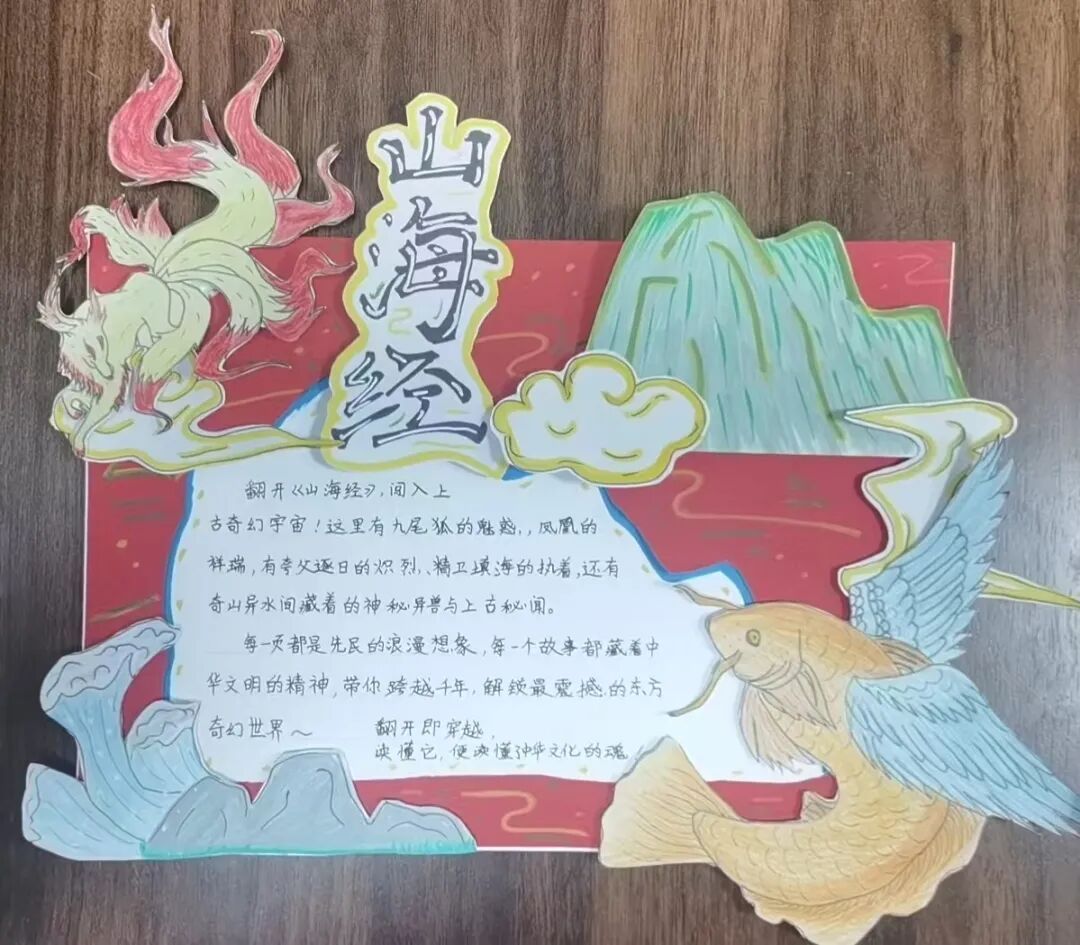 山海经
翻开《山海经》，闯入上
古奇幻宇宙！这里有九尾狐的魅惑，，凤凰的
祥瑞，有夸父逐日的炽烈、精卫填海的执着，还有
奇山异水间藏着的神秘异兽与上古秘闻。
每一页都是先民的浪漫想象，每一个故事都藏着中
华文明的精神，带你跨越千年，解锁最震撼的东方
奇幻世界～
翻开即穿越，
读懂它，便读懂中华文化的魂